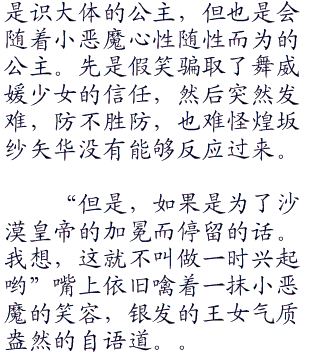 是识大体的公主，但也是会
随着小恶魔心性随性而为的
公主。先是假笑骗取了舞威
媛少女的信任，然后突然发
难，防不胜防，也难怪煌坂
纱矢华没有能够反应过来。
“但是，如果是为了沙
漠皇帝的加冕而停留的话。
我想，这就不叫做一时兴起
哟”嘴上依旧噙着一抹小恶
魔的笑容，银发的王女气质
盎然的自语道。。